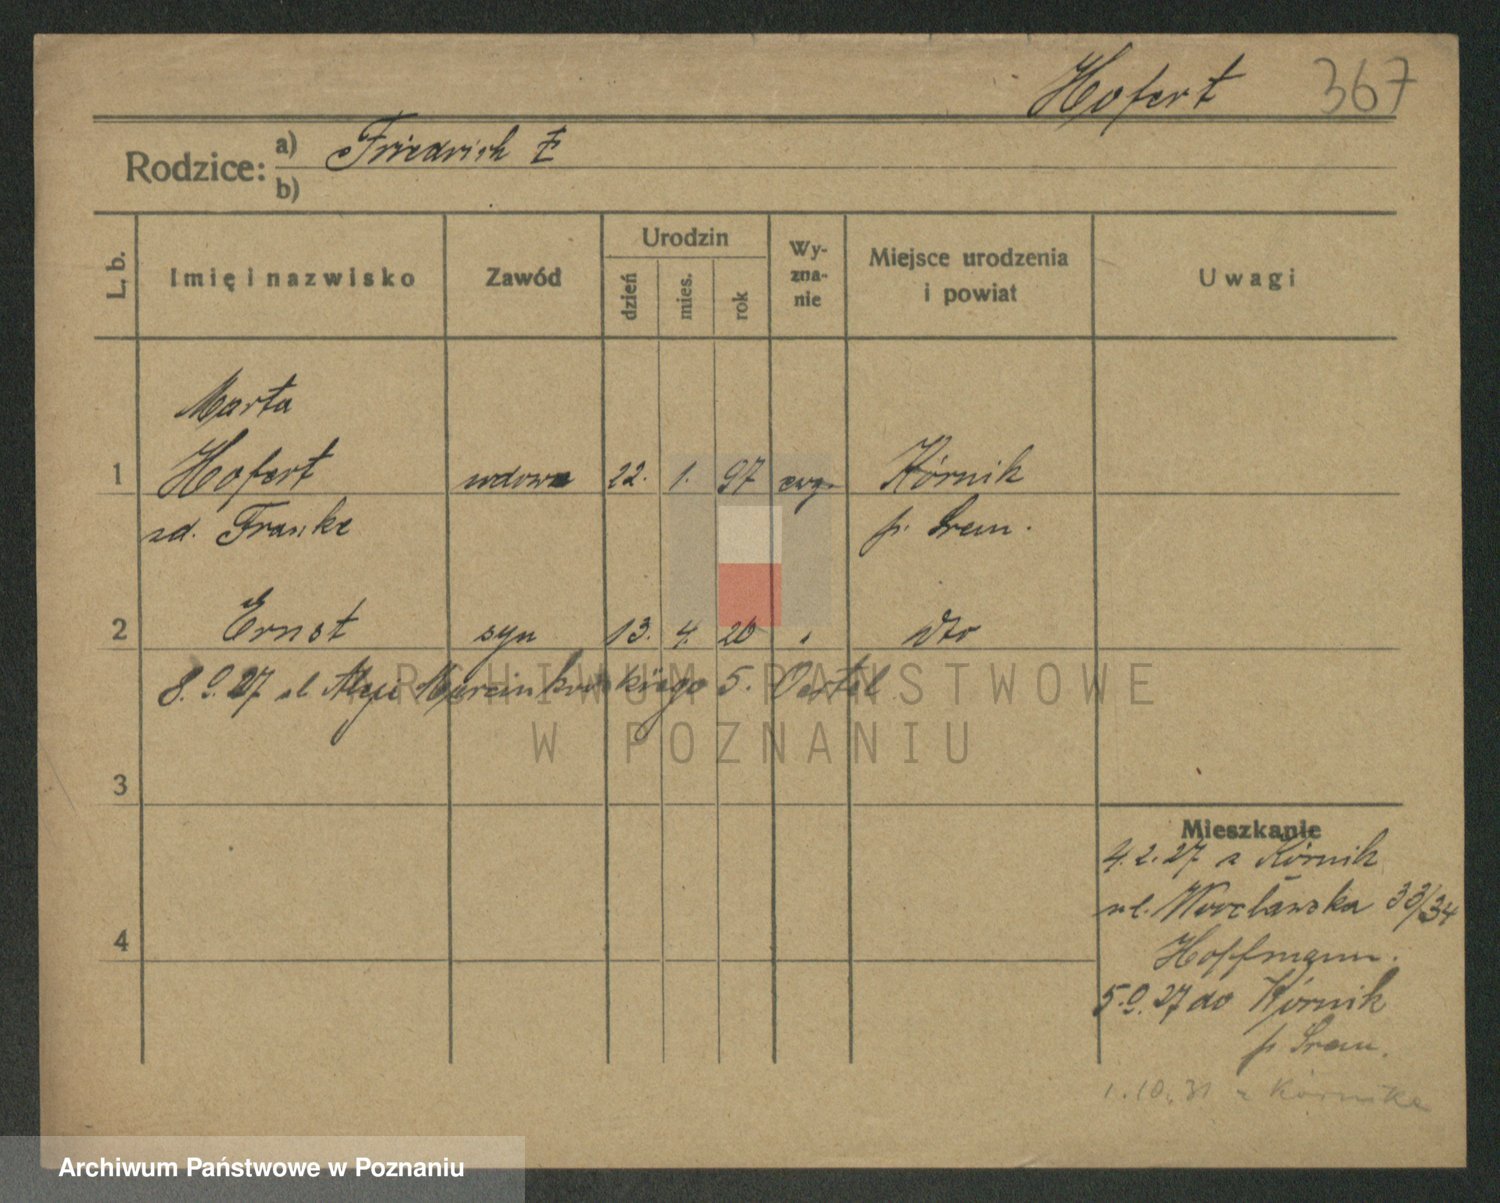 Hofert 367
Rodzice: a) Friedrich
b)
L. b. Imię i nazwisko Zawód Urodzin dzień mies. rok Wy-zna-nie Miejsce urodzenia i powiat Uwagi
Marta
1 Hofert wdowa 22. 1. 97 ewg. Kórnik
zd. Franke p. Śrem.
2 Ernst syn 13. 4. 20 " dto
8.9.27 ul Aleje Marcinkowskiego 5. Oertel
3
Mieszkanie
4.2.27 z Kórnik
ul. Wrocławska 33/34
4 Hoffmann.
5.9.27 do Kórnik
p. Śrem.
1.10.31 z Kórnika
ARCHIWUM PAŃSTWOWE
W POZNANIU
Archiwum Państwowe w Poznaniu